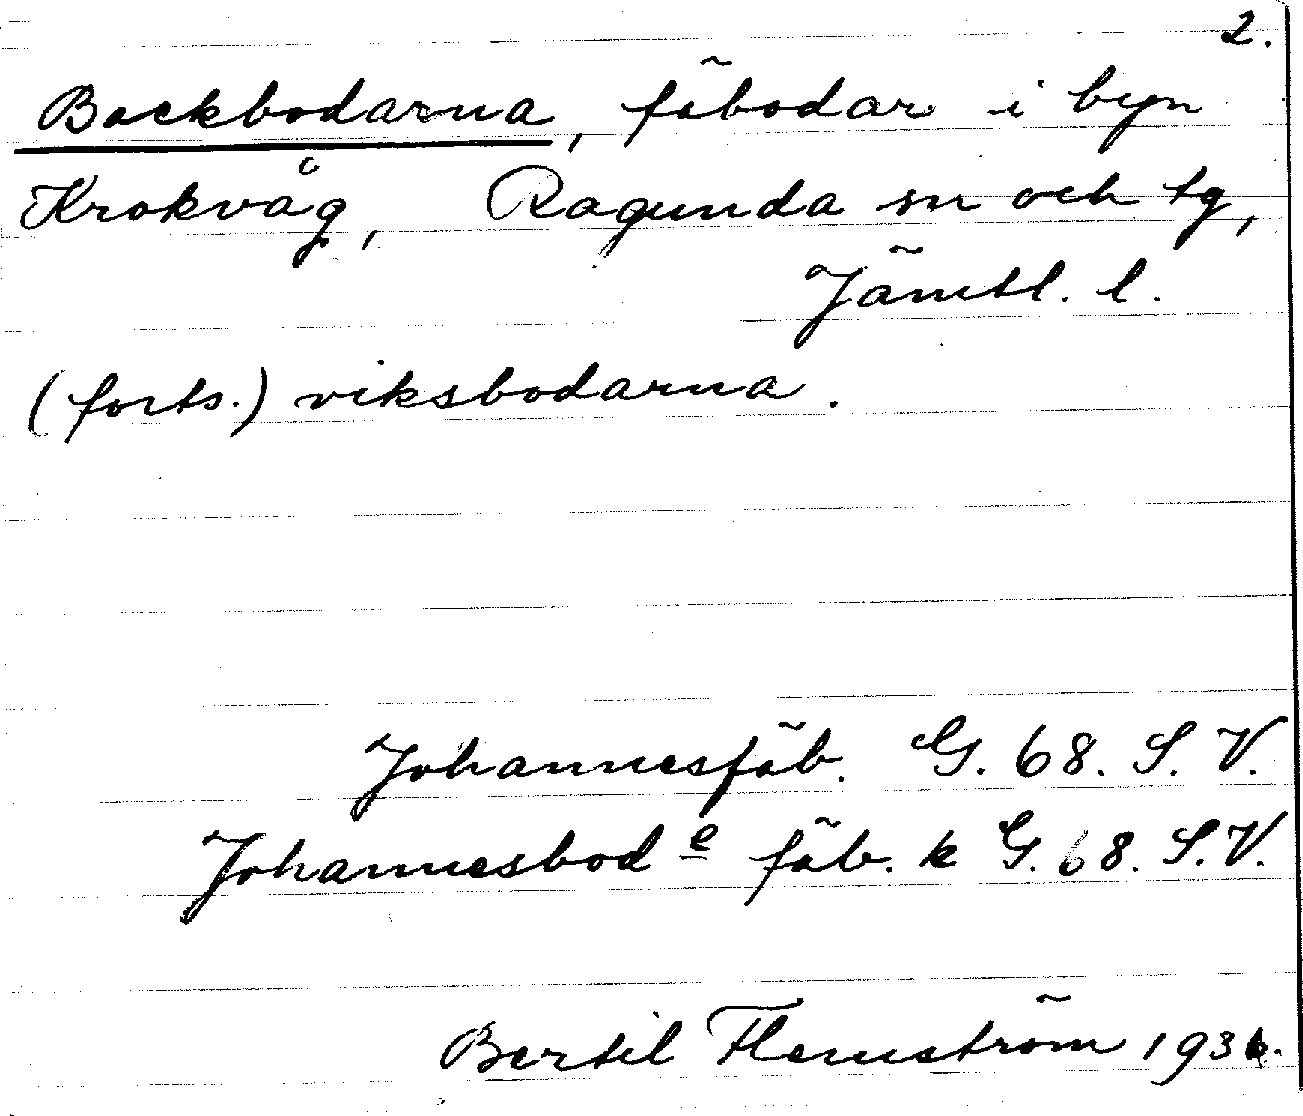 2.
Backbodarna, fäbodar i byn
Krokvåg, Ragunda sn och tg,
Jämtl. l.
(forts.) viksbodarna.
Johannesfäb. G. 68. S. V.
Johannesbod e fäb. k G. 68. S. V.
Bertil Flemström 1936.